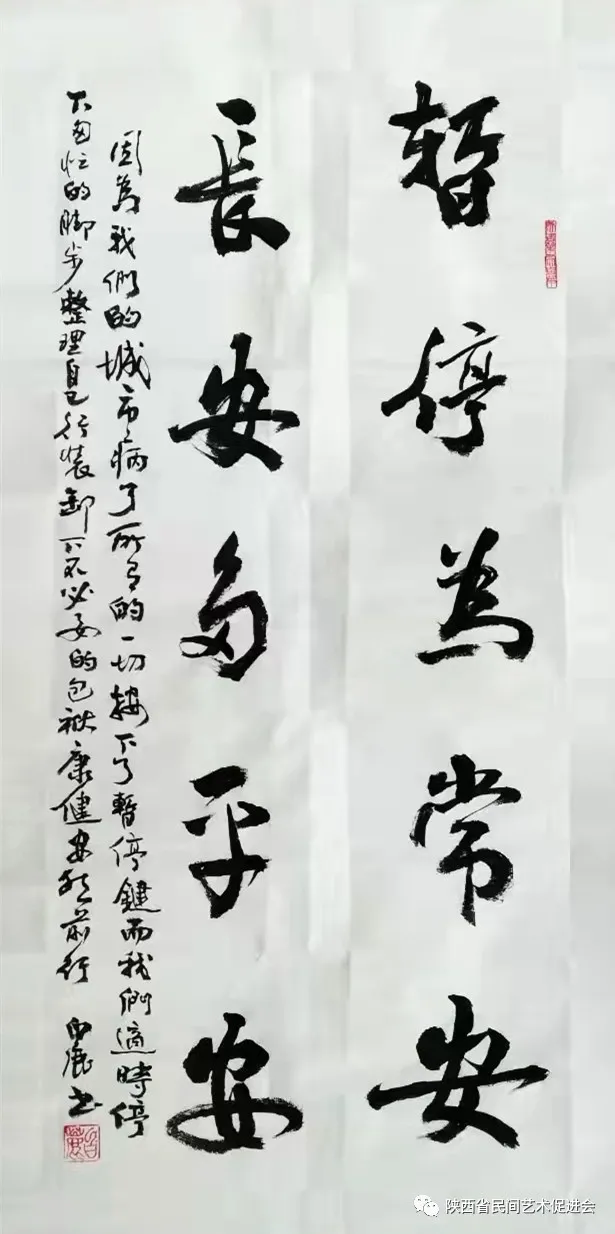 暫停為常安
長安多平安
因為我們的城市病了所有的一切按下了暫停鍵而我們適時停
下匆忙的腳步整理自己行裝卸下不必要的包袱康健安然前行 白鹿书
陕西省民间艺术促进会